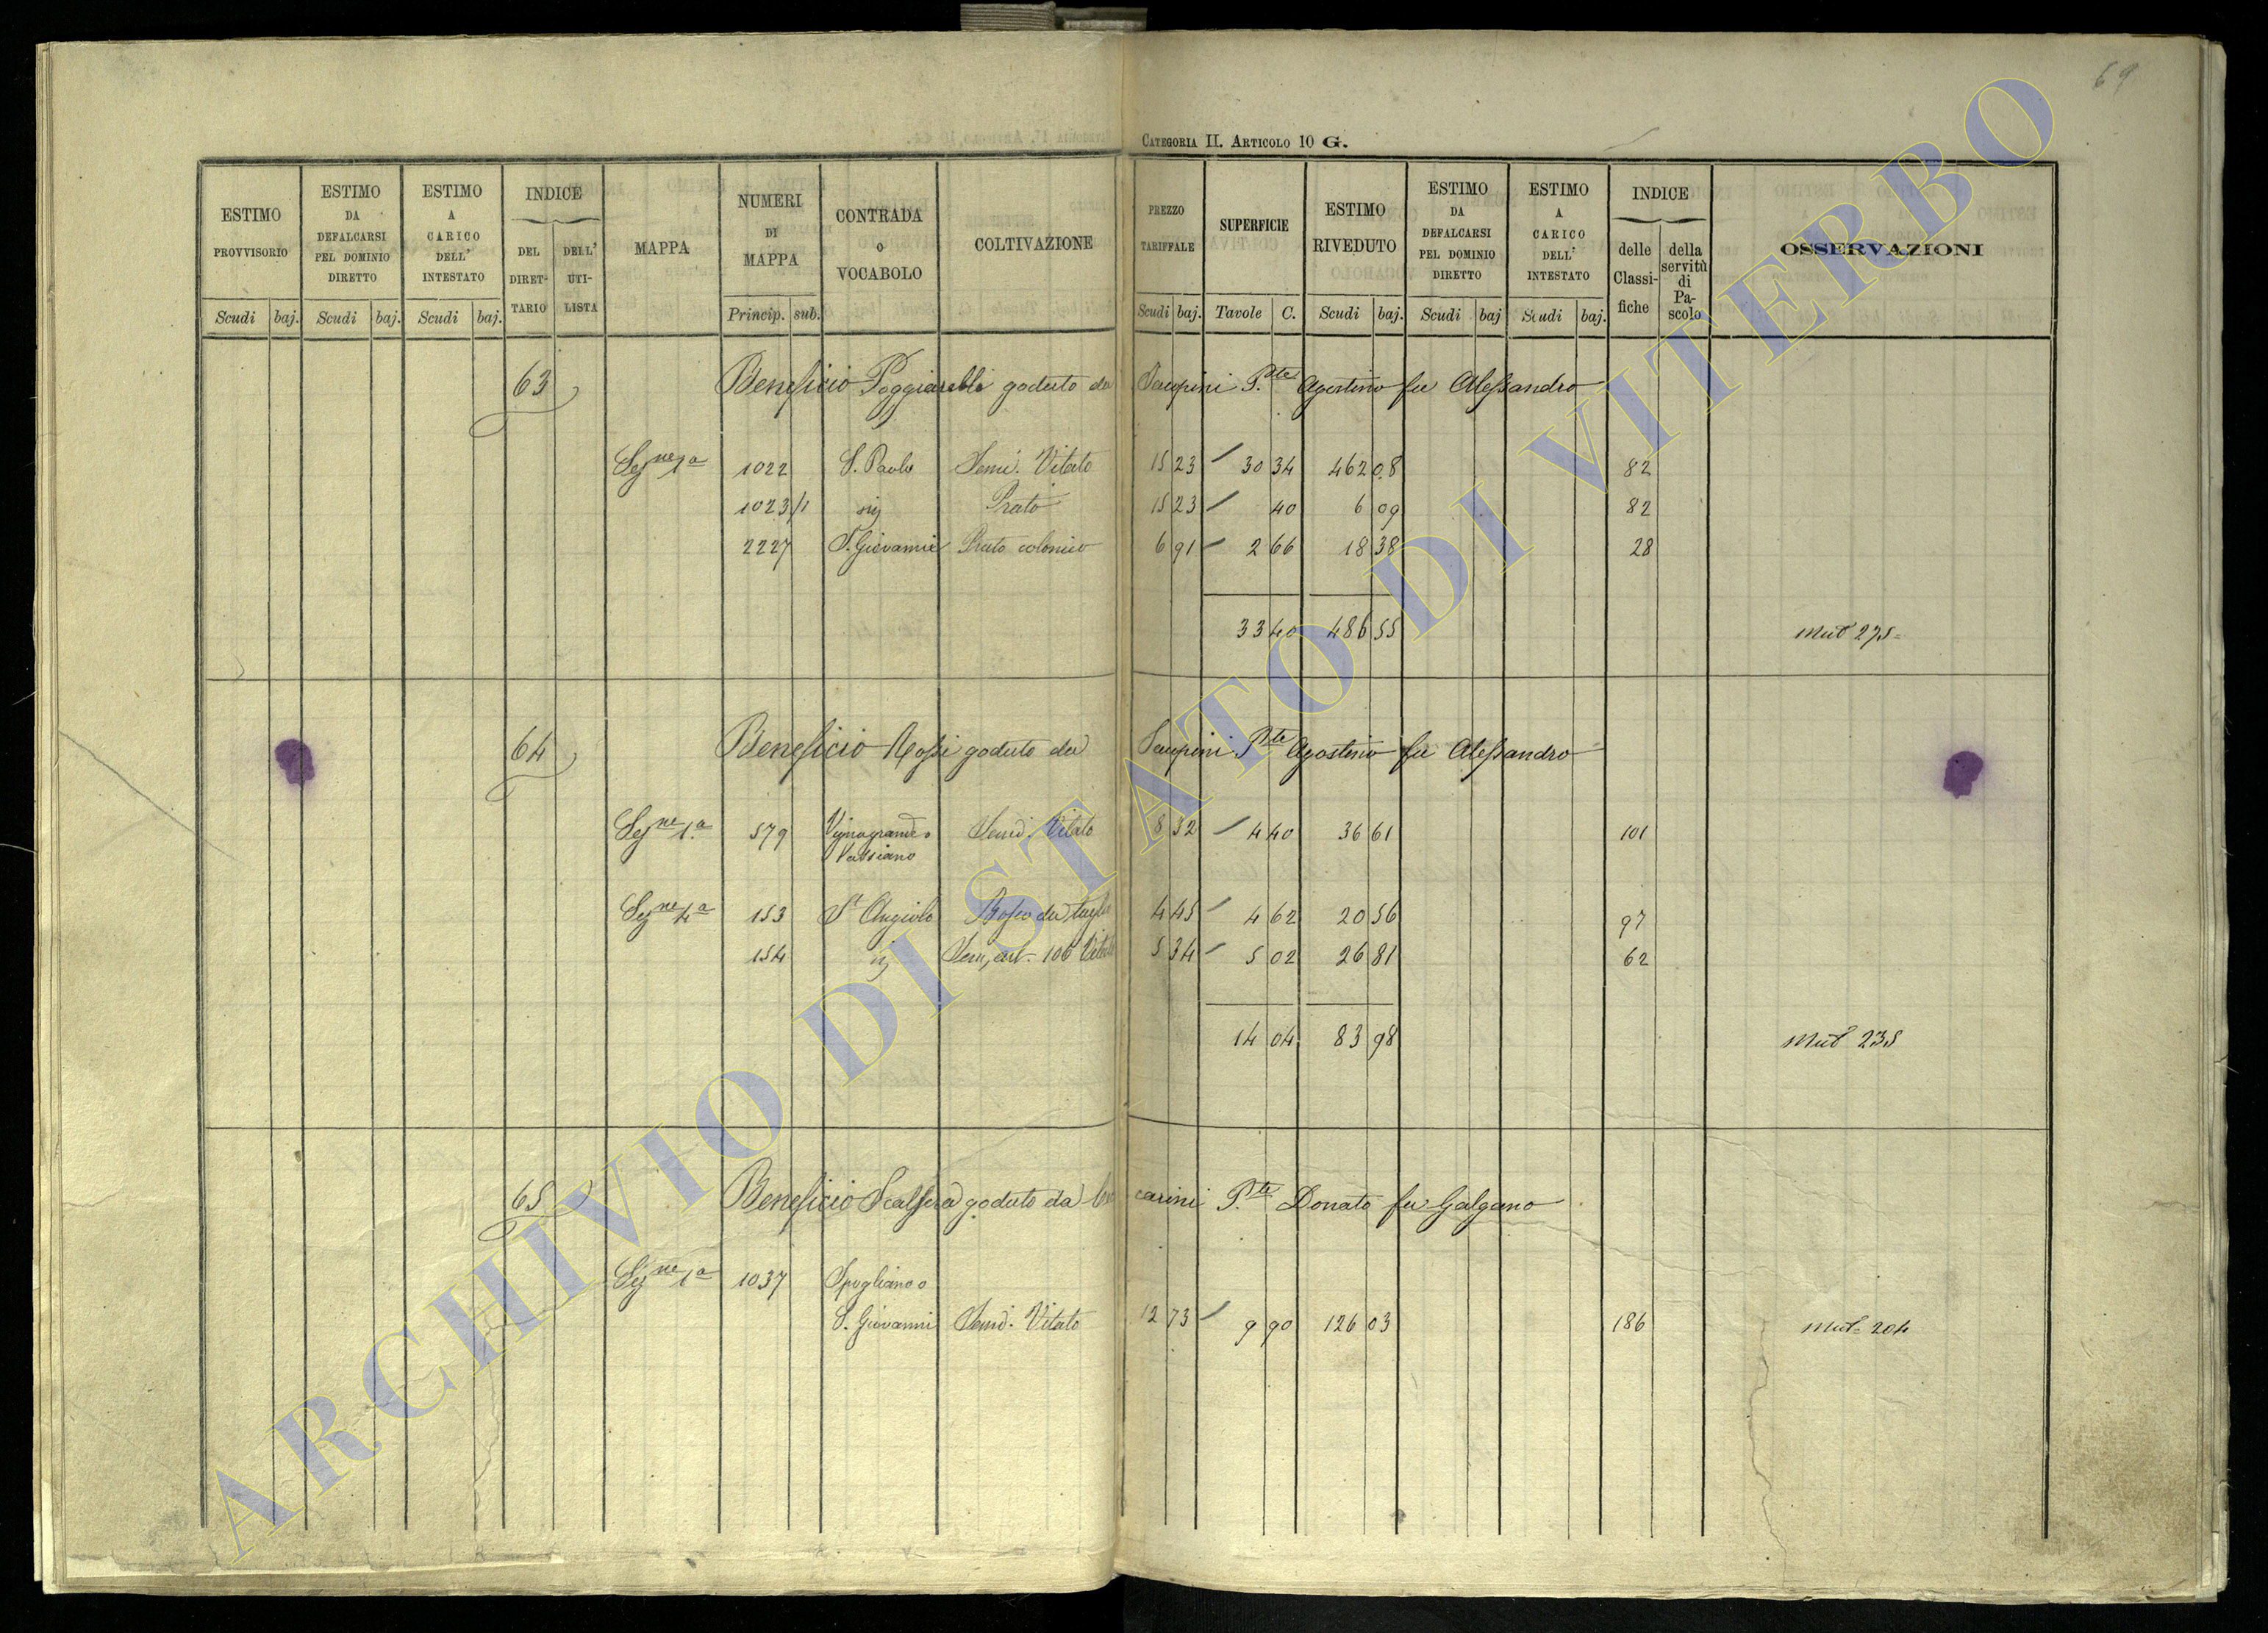 69
CATEGORIA II. ARTICOLO 10 G.
ESTIMO PROVVISORIO
Scudi baj.
ESTIMO DA DEFALCARSI PEL DOMINIO DIRETTO
Scudi baj.
ESTIMO A CARICO DELL' INTESTATO
Scudi baj.
INDICE
DEL DIRETTARIO
DELL' UTILISTA
MAPPA
NUMERI DI MAPPA
Princip. sub.
CONTRADA o VOCABOLO
COLTIVAZIONE
PREZZO TARIFFALE
Scudi baj.
SUPERFICIE
Tavole C.
ESTIMO RIVEDUTO
Scudi baj.
ESTIMO DA DEFALCARSI PEL DOMINIO DIRETTO
Scudi baj
ESTIMO A CARICO DELL' INTESTATO
Scudi baj.
INDICE
delle Classifiche
della servitù di Pascolo
OSSERVAZIONI
63 Beneficio goduto da P.te Agostino fu Alessandro
Seg.ne 1a 1022 S. Paolo Semi. Vitato 15 23 30 34 462 08 82
1023/1 Prato 15 23 40 6 09 82
2227 S. Giovanni Prato colonico 6 91 2 66 18 38 28
33 40 486 55 Mut 275
64 Beneficio Rossi goduto da P.te Agostino fu Alessandro
Seg.ne 1.a 579 Vignagrande o Vassiano Semi. Vitato 8 32 4 40 36 61 101
Seg.ne 4a 153 St Angiolo Bosco da taglio 4 45 4 62 20 56 97
154 5 34 5 02 26 81 62
14 04 83 98 Mut 235
65 Beneficio goduto da P.te Donato fu Galgano
Seg.ne 1a 1037 Spogliano o
S. Giovanni Semi. Vitato 12 73 9 90 126 03 186 Mut 204
ARCHIVIO DI STATO DI VITERBO